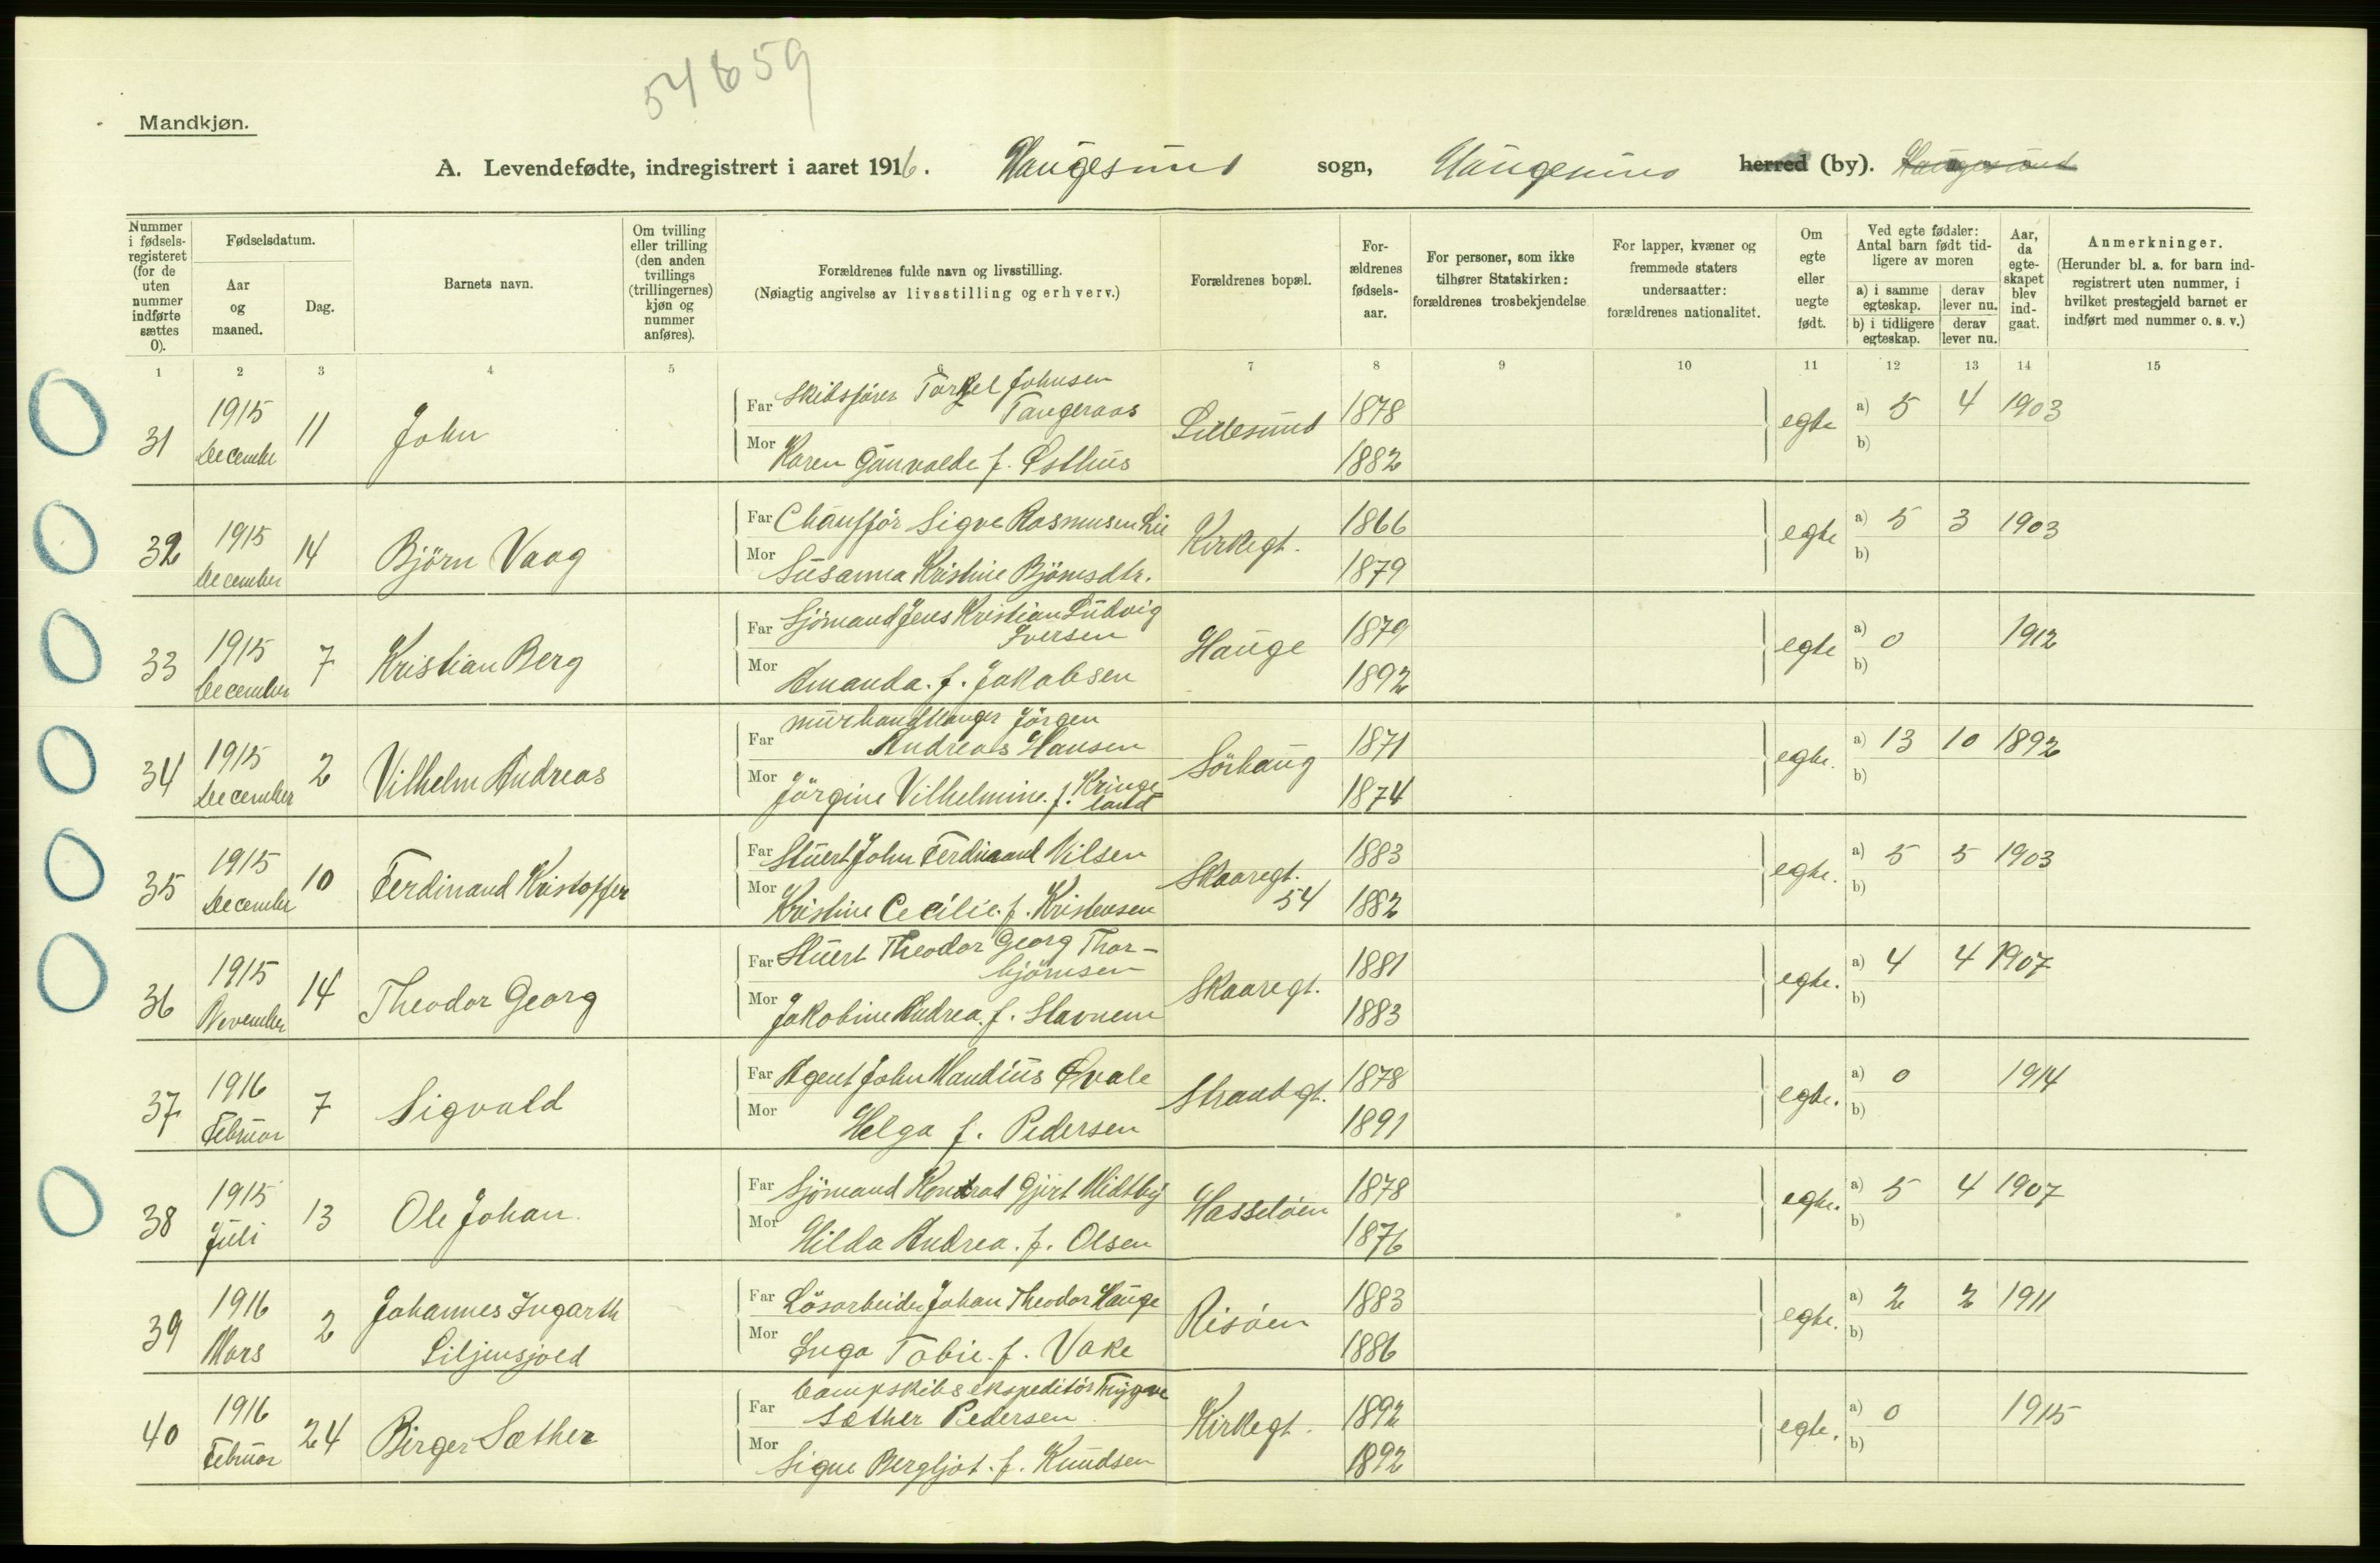 54659
Mandkjøn.
A. Levendefødte, indregistrert i aaret 1916. Haugesund sogn, Haugesund herred (by). Haugesund
Nummer i fødsels-registeret (for de uten nummer indførte sættes 0).
Fødselsdatum.
Aar og maaned.
Dag.
Barnets navn.
Om tvilling eller trilling (den anden tvillings (trillingernes) kjøn og nummer anføres).
Forældrenes fulde navn og livsstilling.
(Nøiagtig angivelse av livsstilling og erhverv.)
Forældrenes bopæl.
For-ældrenes fødsels-aar.
For personer, som ikke tilhører Statskirken: forældrenes trosbekjendelse
For lapper, kvæner og fremmede staters undersaatter: forældrenes nationalitet.
Om egte eller uegte født.
Ved egte fødsler: Antal barn født tid-ligere av moren
a) i samme egteskap.
derav lever nu.
b) i tidligere egteskap.
derav lever nu.
Aar, da egte-skapet blev ind-gaat.
Anmerkninger.
(Herunder bl. a. for barn ind-registrert uten nummer, i hvilket prestegjeld barnet er indført med nummer o. s. v.)
1 2 3 4 5 6 7 8 9 10 11 12 13 14 15
31 1915 December 11 John
Far Skibsfører Torkel Johnsen Tangeraas
Mor Karen Gunvalde f. Østhus
Lillesund 1878 1882 egte a) 5 4 1903
b)
32 1915 December 14 Björn Vaag
Far Chauffør Sigve Rasmusen Lie
Mor Susanna Kristine Björnsdtr.
Kirkegt. 1866 1879 egte a) 5 3 1903
b)
33 1915 December 7 Kristian Berg
Far Sjömand Jens Kristian Ludvig Iversen
Mor Amanda. f. Jakobsen
Hauge 1879 1892 egte a) 0 1912
b)
34 1915 December 2 Vilhelm Andreas
Far murhandlanger Jörgen Andreas Hansen
Mor Jörgine Vilhelmine. f. Kringeland
Sörhaug 1871 1874 egte. a) 13 10 1892
b)
35 1915 December 10 Ferdinand Kristoffer
Far Stuert John Ferdinand Nilsen
Mor Kristine Cecilie. f. Kristensen
Skaaregt. 54 1883 1882 egte. a) 5 5 1903
b)
36 1915 November 14 Theodor Georg
Far Stuert Theodor Georg Thor-björnsen
Mor Jakobine Andrea. f. Stavnem
Skaaregt. 1881 1883 egte. a) 4 4 1907
b)
37 1916 Februar 7 Sigvald
Far Agent John Mandius Qvale
Mor Helga f. Pedersen
Strandgt. 1878 1891 egte. a) 0 1914
b)
38 1915 Juli 13 Ole Johan.
Far Sjömand Konrad Gjert Midtby
Mor Hilda Andrea. f. Olsen
Hasseløen 1878 1876 egte. a) 5 4 1907
b)
39 1916 Mars 2 Johannes Ingarth Liljensjold
Far Lösarbeider Johan Theodor Hauge
Mor Inga Tobie. f. Vake
Risøen 1883 1886 egte. a) 2 2 1911
b)
40 1916 Februar 24 Birger Sæther
Far Dampskibsekspeditör Trygve Sæther Pedersen
Mor Signe Bergljot. f. Knudsen
Kirkegt. 1892 1892 egte. a) 0 1915
b)